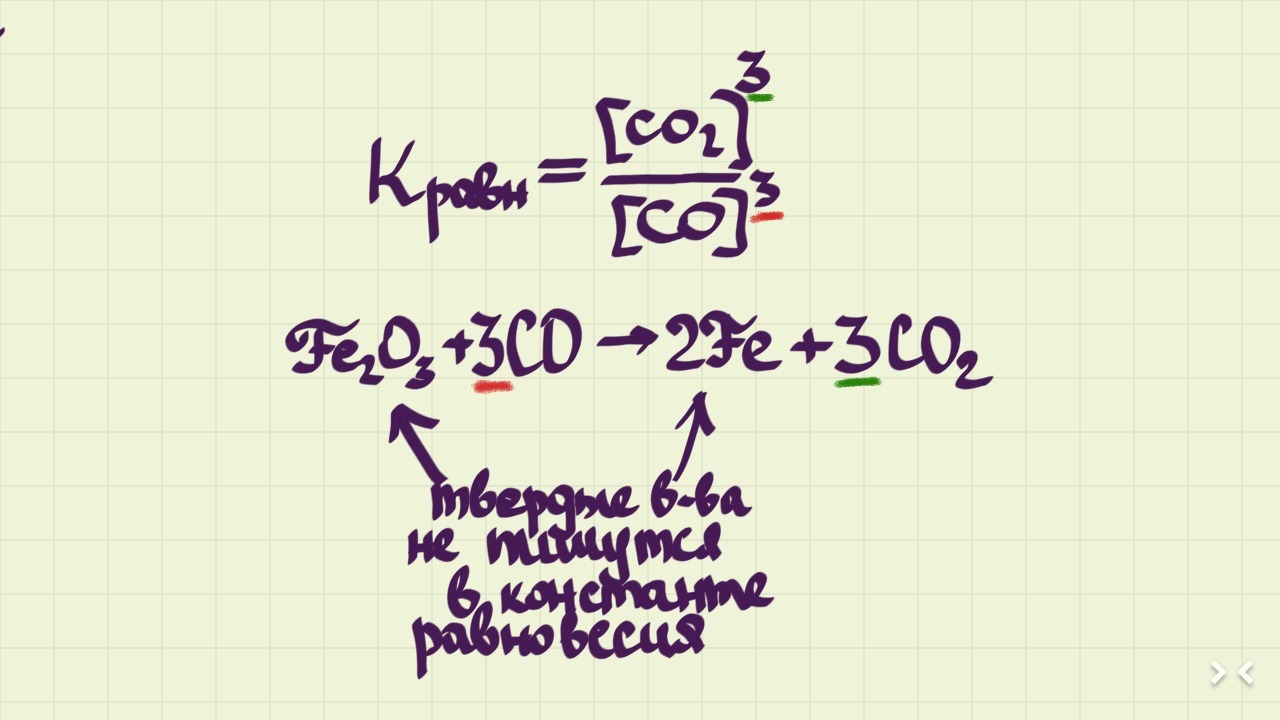 Kравн = [CO₂]³ / [CO]³
Fe₂O₃ + 3CO → 2Fe + 3CO₂
твердые в-ва
не пишутся
в константе
равновесия